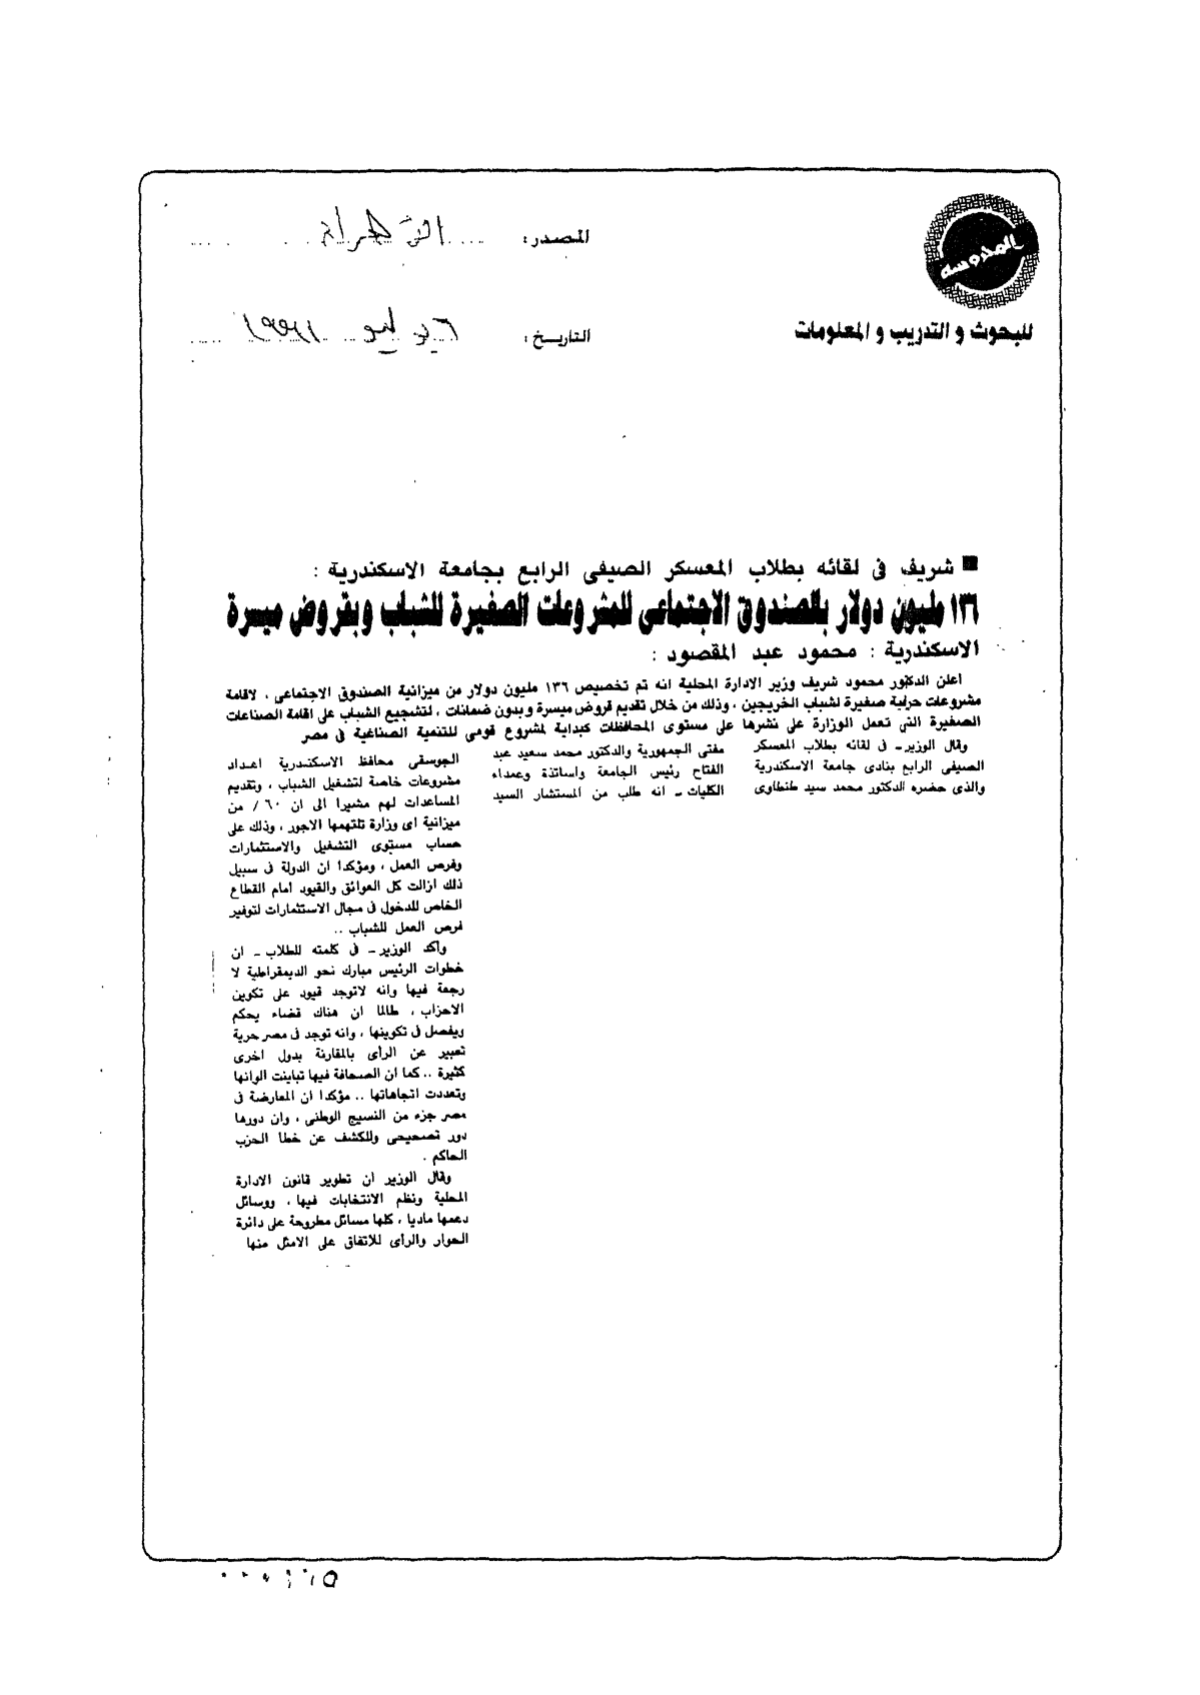 المحروسة
للبحوث و التدريب و المعلومات
المصدر : الأهرام
التاريخ : ٦ يوليو ١٩٩١
■ شريف فى لقائه بطلاب المعسكر الصيفى الرابع بجامعة الاسكندرية :
١٣٦ مليون دولار بالصندوق الاجتماعى للمشروعات الصغيرة للشباب وبقروض ميسرة
الاسكندرية : محمود عبد المقصود :
اعلن الدكتور محمود شريف وزير الادارة المحلية انه تم تخصيص ١٣٦ مليون دولار من ميزانية الصندوق الاجتماعى ، لاقامة
مشروعات حرفية صغيرة لشباب الخريجين ، وذلك من خلال تقديم قروض ميسرة وبدون ضمانات ، لتشجيع الشباب على اقامة الصناعات
الصغيرة التى تعمل الوزارة على نشرها على مستوى المحافظات كبداية لمشروع قومى للتنمية الصناعية فى مصر
وقال الوزير ـ فى لقائه بطلاب المعسكر
الصيفى الرابع بنادى جامعة الاسكندرية
والذى حضره الدكتور محمد سيد طنطاوى
مفتى الجمهورية والدكتور محمد سعيد عبد
الفتاح رئيس الجامعة واساتذة وعمداء
الكليات ـ انه طلب من المستشار السيد
الجوسقى محافظ الاسكندرية اعداد
مشروعات خاصة لتشغيل الشباب ، وتقديم
المساعدات لهم مشيرا الى ان ٦٠ / من
ميزانية اى وزارة تلتهمها الاجور ، وذلك على
حساب مستوى التشغيل والاستثمارات
وفرص العمل ، ومؤكدا ان الدولة فى سبيل
ذلك ازالت كل العوائق والقيود امام القطاع
الخاص للدخول فى مجال الاستثمارات لتوفير
فرص العمل للشباب ..
واكد الوزير ـ فى كلمته للطلاب ـ ان
خطوات الرئيس مبارك نحو الديمقراطية لا
رجعة فيها وانه لاتوجد قيود على تكوين
الاحزاب ، طالما ان هناك قضاء يحكم
ويفصل فى تكوينها ، وانه توجد فى مصر حرية
تعبير عن الرأى بالمقارنة بدول اخرى
كثيرة .. كما ان الصحافة فيها تباينت الوانها
وتعددت اتجاهاتها .. مؤكدا ان المعارضة فى
مصر جزء من النسيج الوطنى ، وان دورها
دور تصحيحى وللكشف عن خطا الحزب
الحاكم .
وقال الوزير ان تطوير قانون الادارة
المحلية ونظم الانتخابات فيها ، ووسائل
دعمها ماديا ، كلها مسائل مطروحة على دائرة
الحوار والرأى للاتفاق على الامثل منها